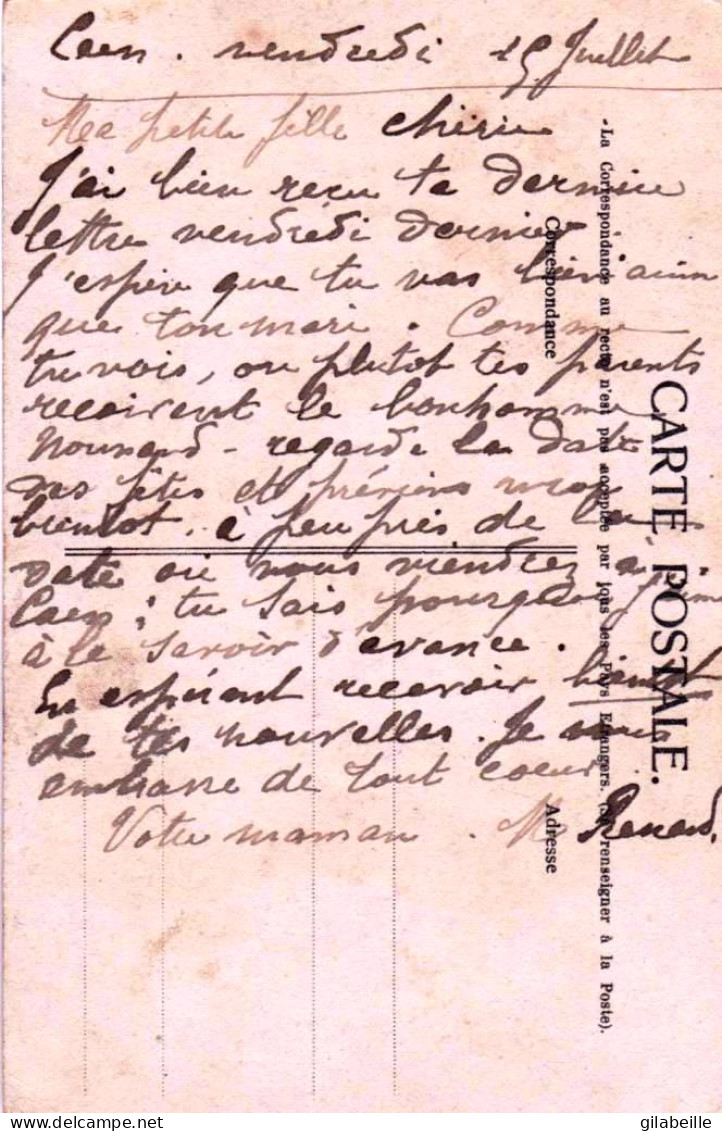 Caen. vendredi 15 Juillet
Ma petite fille chérie
J'ai bien reçu ta dernière
lettre vendredi dernier.
J'espère que tu vas bien ainsi
que ton mari. Comme
tu vois, ou plutot tes parents
recoivent le bonhomme
- regarde la date
des fêtes et préviens moi
bientot. à peu près de la
date où vous viendrez à
Caen; tu sais pourquoi j'aime
à le savoir d'avance.
En espérant recevoir bientot
de tes nouvelles. Je vous
embrasse de tout coeur
Votre maman. M Renard.
CARTE POSTALE.
-La Correspondance au recto n'est pas acceptée par tous les pays Etrangers. (Se renseigner à la Poste).
Correspondance
Adresse
gilabeille